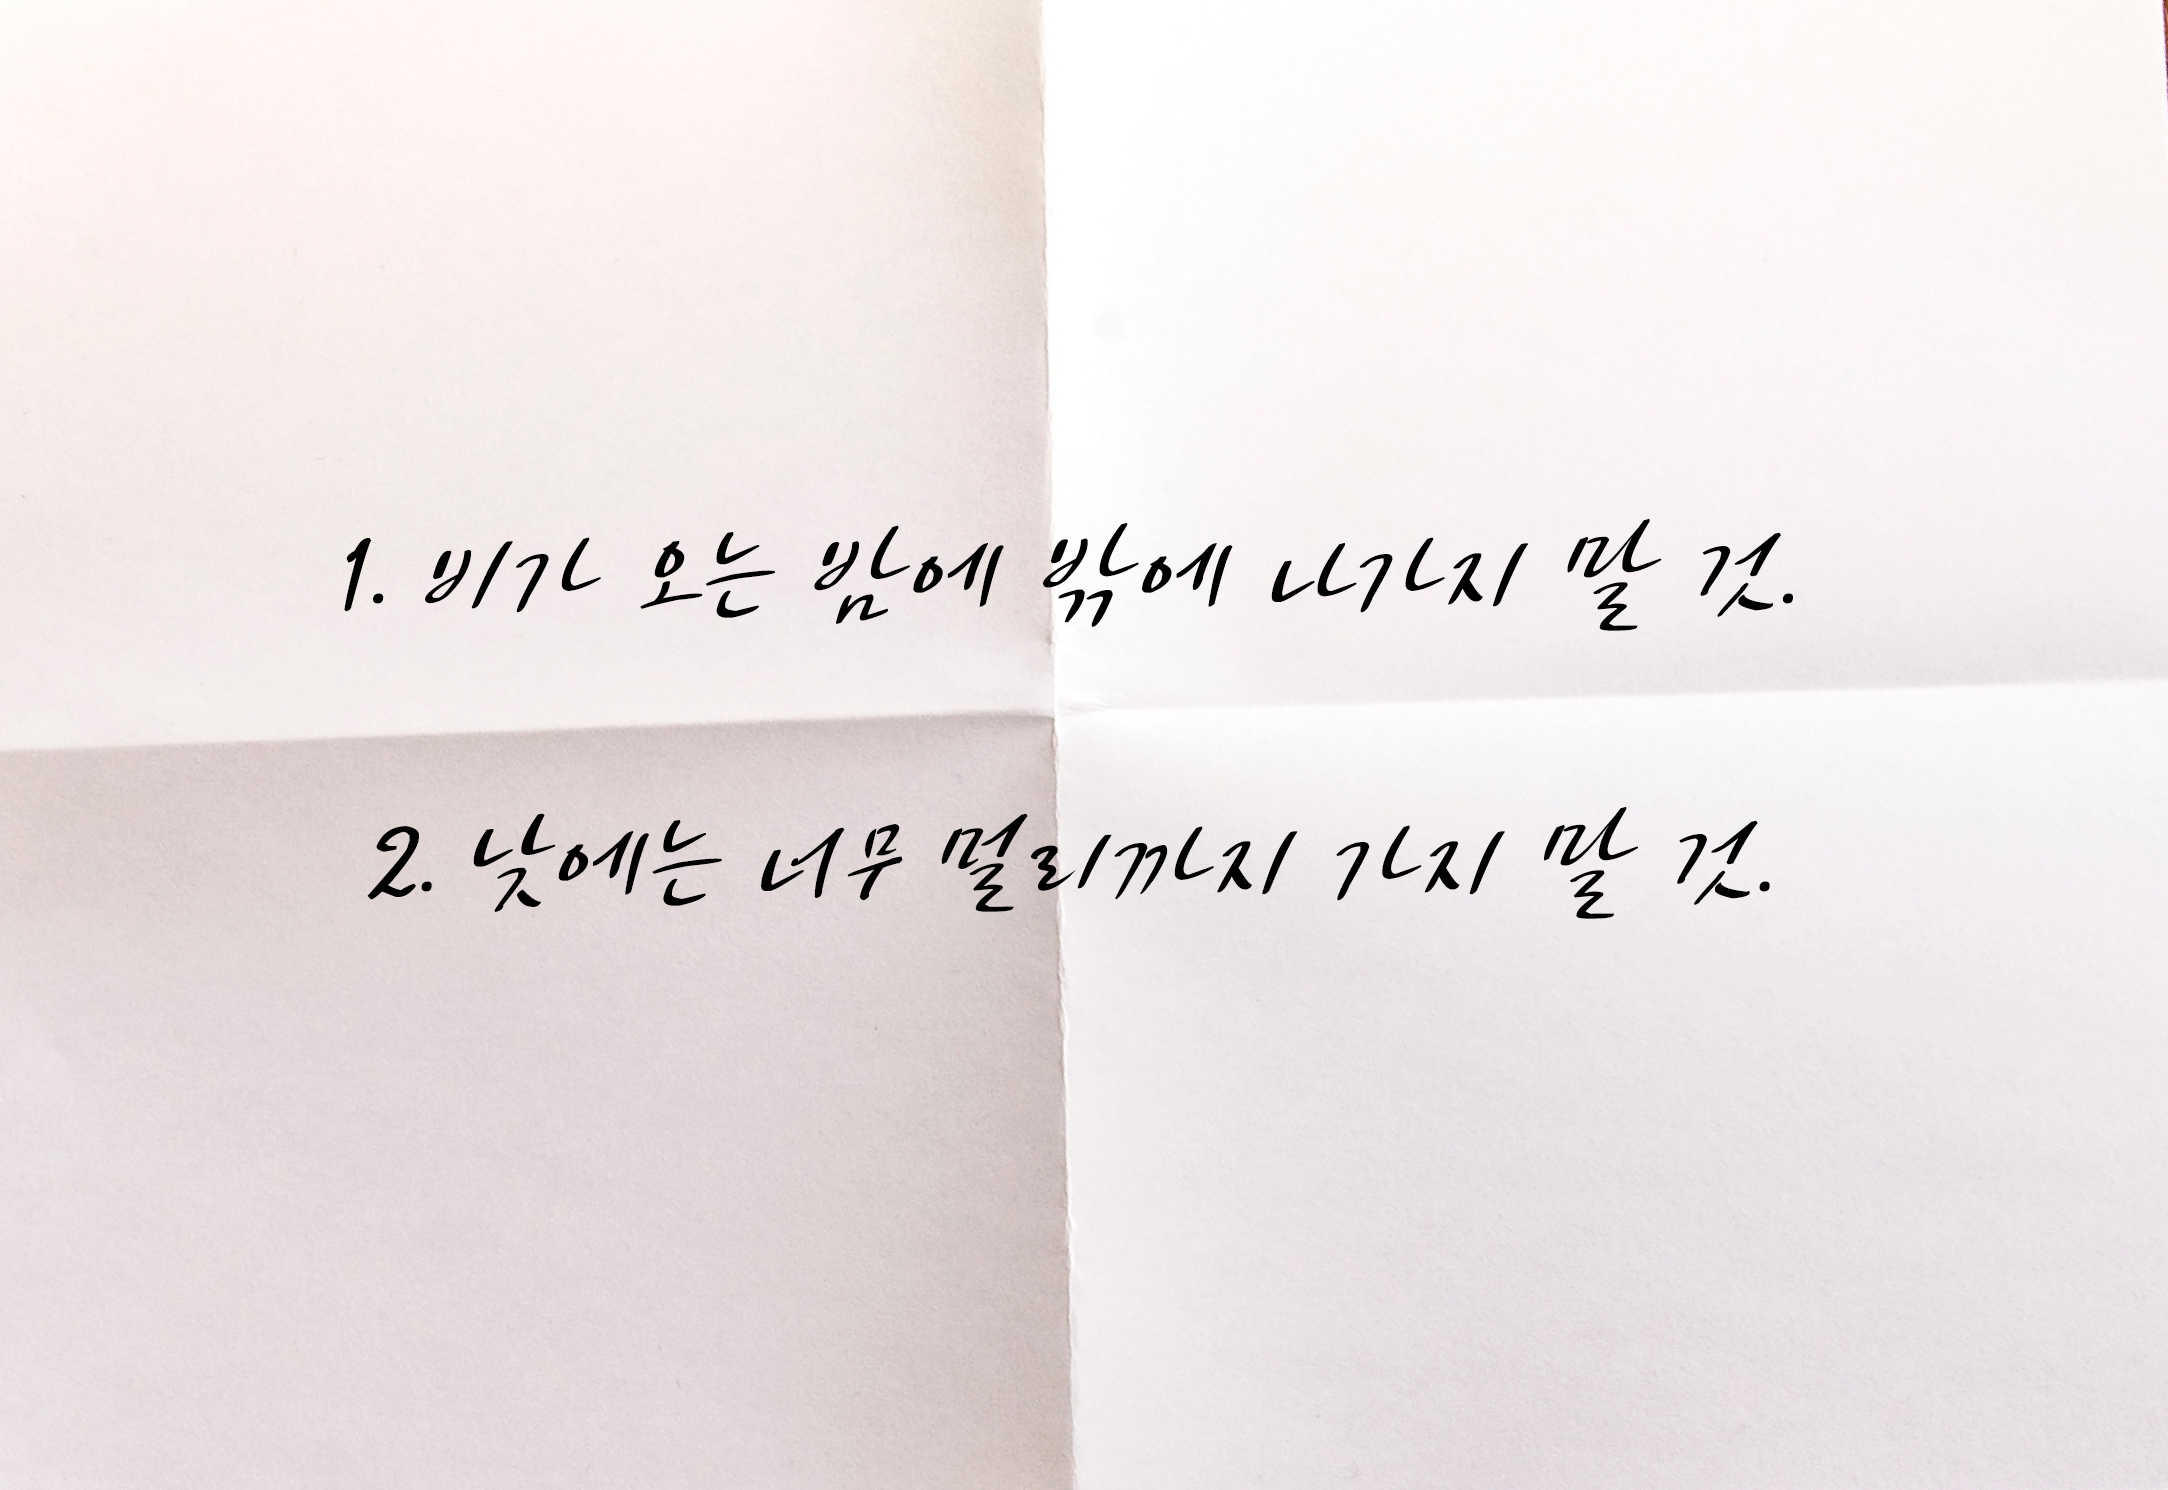 1. 비가 오는 밤에 밖에 나가지 말 것.
2. 낮에는 너무 멀리까지 가지 말 것.